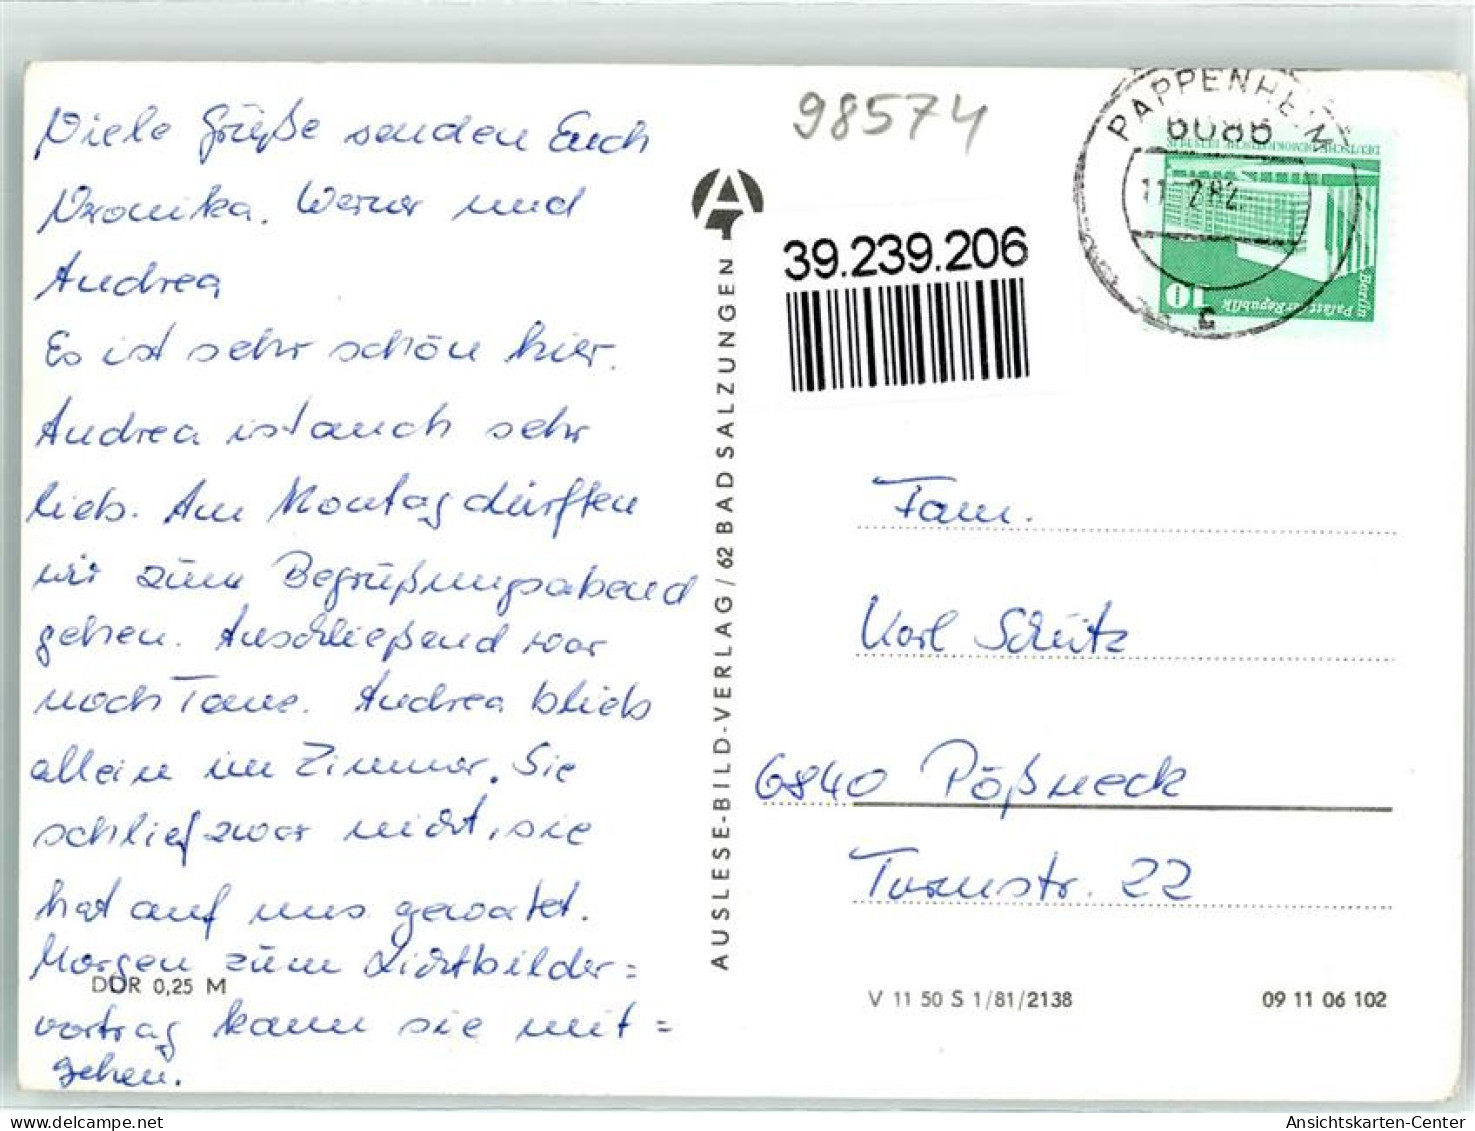 Viele Grüße senden Euch
Veronika, Werner und
Andrea
Es ist sehr schön hier.
Andrea ist auch sehr
lieb. Am Montag dürffen
wir zum Begrüßungsabend
gehen. Anschließend war
noch Tanz. Andrea blieb
allein im Zimmer. Sie
schlief zwar nicht, sie
hat auf uns gewartet.
Morgen zum Lichtbilder=
vortrag kann sie mit=
gehen.
DDR 0,25 M
AUSLESE-BILD-VERLAG / 62 BAD SALZUNGEN
A
98574
39.239.206
PAPPENHEIM
6086
11.2.82
c
DEUTSCHE DEMOKRATISCHE REPUBLIK
10
Berlin
Palast der Republik
Fam.
Karl Schütz
6840 Pößneck
Turmstr. 22
V 11 50 S 1/81/2138
09 11 06 102
oldthing.de
Ansichtskarten-Center